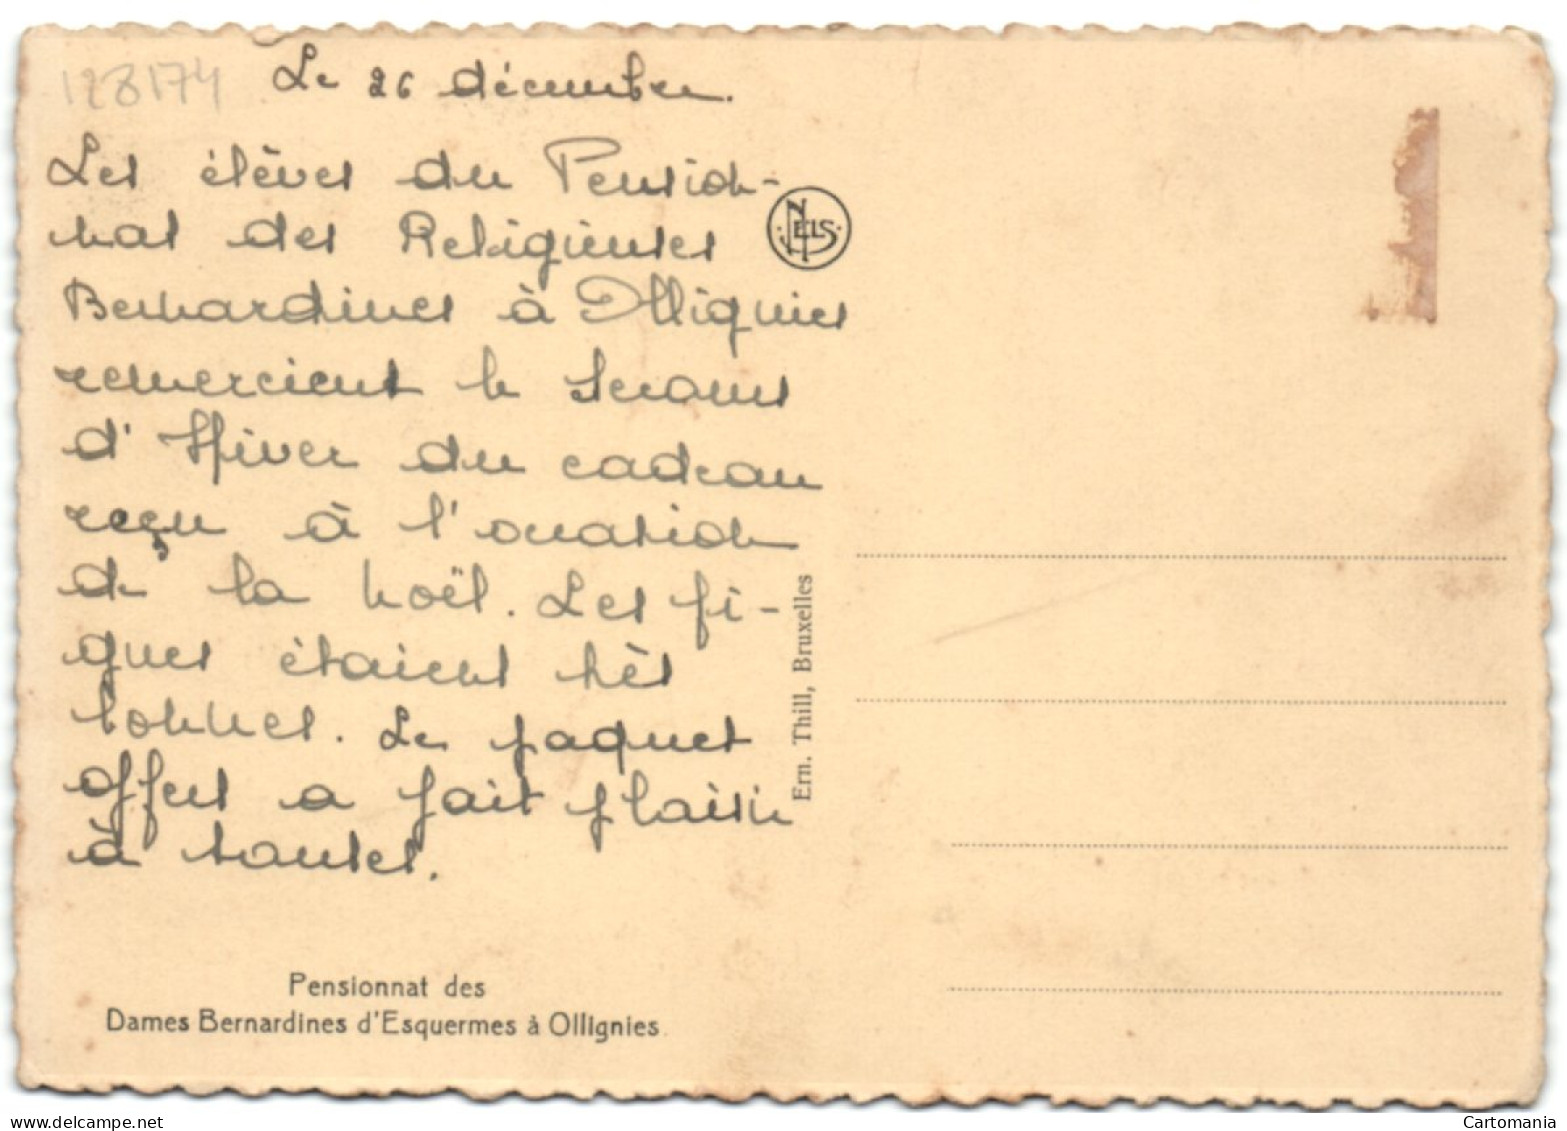 128174
Le 26 décembre.
Les élèves du Pension-
nat des Religieuses
Bernardines à Ollignies
remercient le Secours
d'Hiver du cadeau
reçu à l'occasion
de la Noël. Les fi-
gues étaient très
bonnes. Le paquet
offert a fait plaisir
à toutes.
NELS
Ern. Thill, Bruxelles
Pensionnat des
Dames Bernardines d'Esquermes à Ollignies
www.delcampe.net
Cartomania